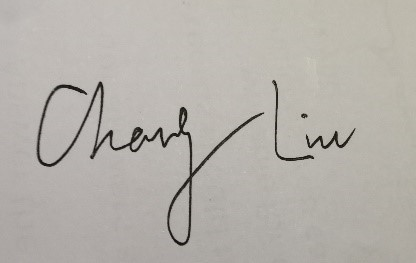 Chang Liu